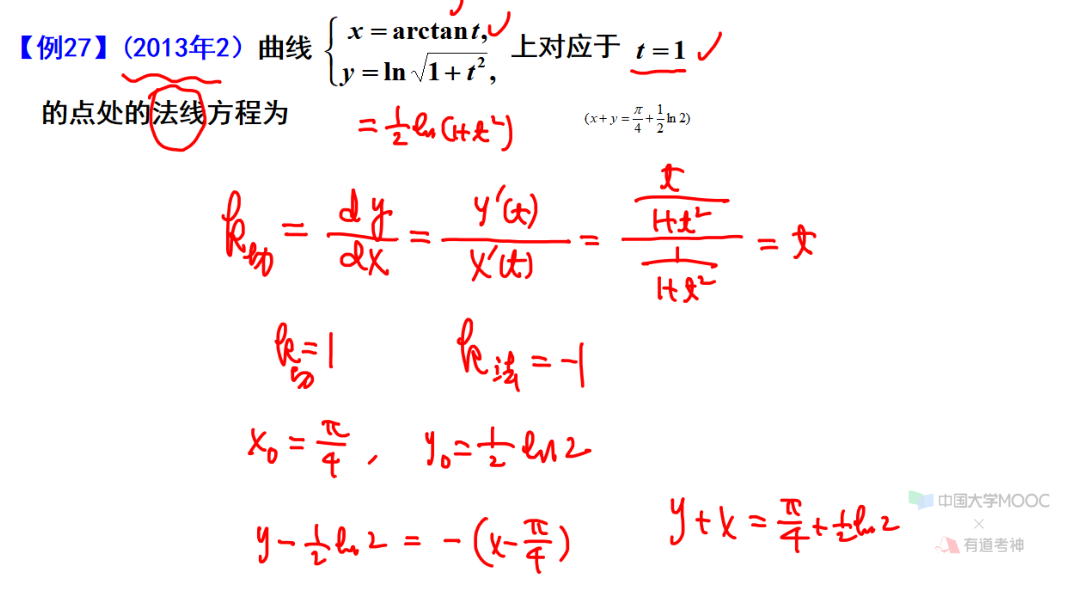 【例27】(2013年2) 曲线 { x = arctan t, y = ln √(1 + t²), 上对应于 t = 1
的点处的法线方程为
= 1/2 ln(1+t²)
(x + y = π/4 + 1/2 ln 2)
k切 = dy/dx = y'(t)/x'(t) = (t/(1+t²))/(1/(1+t²)) = t
k切 = 1 k法 = -1
x₀ = π/4 , y₀ = 1/2 ln 2
y - 1/2 ln 2 = -(x - π/4)
y + x = π/4 + 1/2 ln 2
中国大学MOOC
×
有道考神